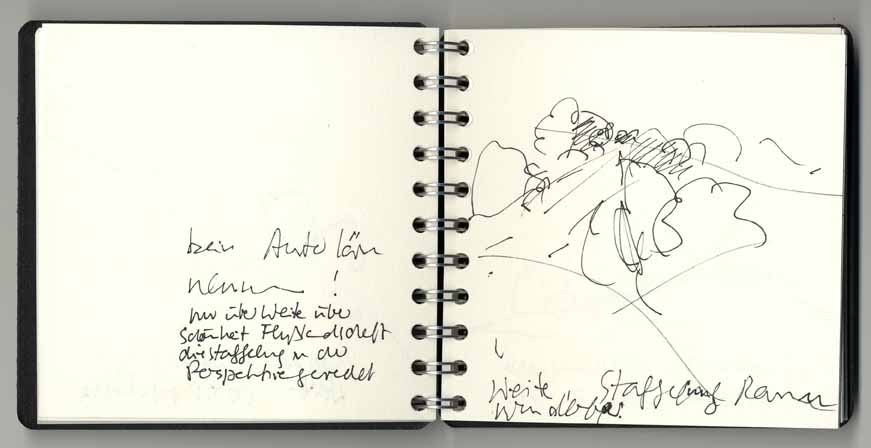 kein Auto lärm
nennen !
nur über Weite über
schönheit Flußlandschaft
die staffelung u die
Perspektive geredet
Weite, Staffelung Raum